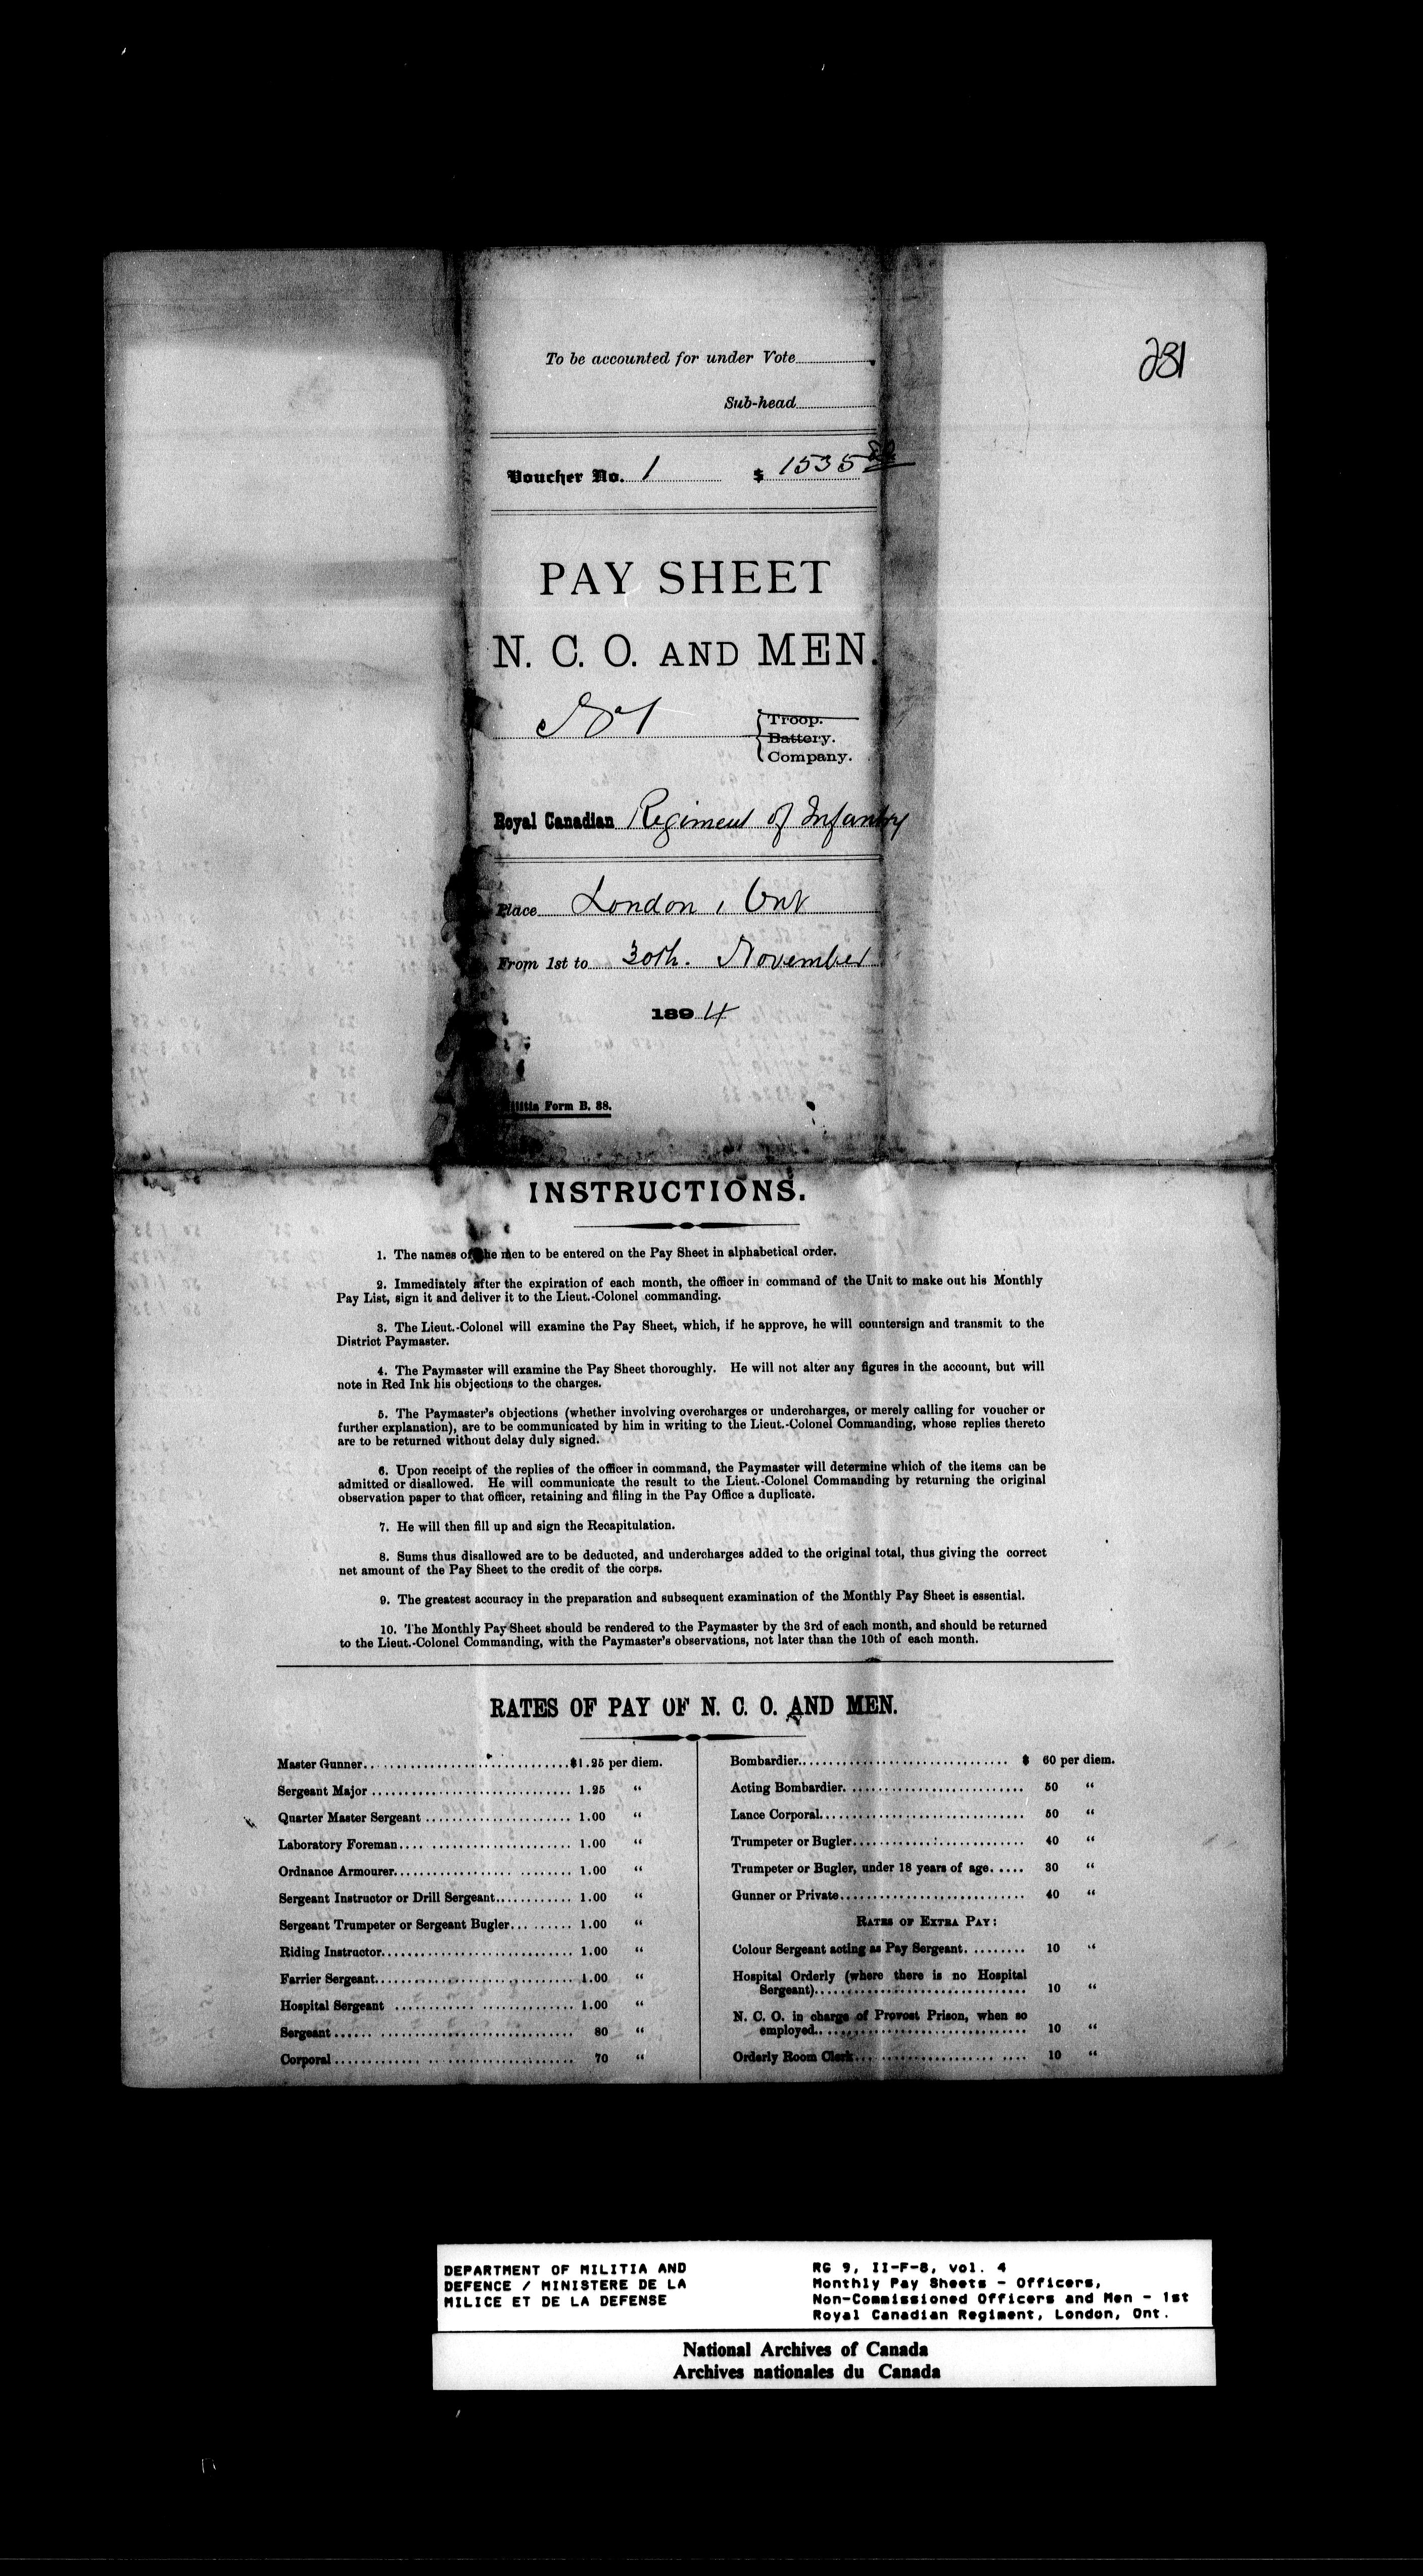 281
To be accounted for under Vote
Sub-head
Voucher No. 1 $ 1535
PAY SHEET
N. C. O. AND MEN.
No 1
Troop.
Battery.
Company.
Royal Canadian Regiment of Infantry
Place London, Ont
From 1st to 30th. November
1894
Form B. 88.
INSTRUCTIONS.
1. The names of the men to be entered on the Pay Sheet in alphabetical order.
2. Immediately after the expiration of each month, the officer in command of the Unit to make out his Monthly
Pay List, sign it and deliver it to the Lieut.-Colonel commanding.
3. The Lieut.-Colonel will examine the Pay Sheet, which, if he approve, he will countersign and transmit to the
District Paymaster.
4. The Paymaster will examine the Pay Sheet thoroughly. He will not alter any figures in the account, but will
note in Red Ink his objections to the charges.
5. The Paymaster's objections (whether involving overcharges or undercharges, or merely calling for voucher or
further explanation), are to be communicated by him in writing to the Lieut.-Colonel Commanding, whose replies thereto
are to be returned without delay duly signed.
6. Upon receipt of the replies of the officer in command, the Paymaster will determine which of the items can be
admitted or disallowed. He will communicate the result to the Lieut.-Colonel Commanding by returning the original
observation paper to that officer, retaining and filing in the Pay Office a duplicate.
7. He will then fill up and sign the Recapitulation.
8. Sums thus disallowed are to be deducted, and undercharges added to the original total, thus giving the correct
net amount of the Pay Sheet to the credit of the corps.
9. The greatest accuracy in the preparation and subsequent examination of the Monthly Pay Sheet is essential.
10. The Monthly Pay Sheet should be rendered to the Paymaster by the 3rd of each month, and should be returned
to the Lieut.-Colonel Commanding, with the Paymaster's observations, not later than the 10th of each month.
RATES OF PAY OF N. C. O. AND MEN.
Master Gunner $1.25 per diem.
Sergeant Major 1.25 "
Quarter Master Sergeant 1.00 "
Laboratory Foreman 1.00 "
Ordnance Armourer 1.00 "
Sergeant Instructor or Drill Sergeant 1.00 "
Sergeant Trumpeter or Sergeant Bugler 1.00 "
Riding Instructor 1.00 "
Farrier Sergeant 1.00 "
Hospital Sergeant 1.00 "
Sergeant 80 "
Corporal 70 "
Bombardier $ 60 per diem.
Acting Bombardier 50 "
Lance Corporal 50 "
Trumpeter or Bugler 40 "
Trumpeter or Bugler, under 18 years of age 30 "
Gunner or Private 40 "
RATES OF EXTRA PAY:
Colour Sergeant acting as Pay Sergeant 10 "
Hospital Orderly (where there is no Hospital
Sergeant) 10 "
N. C. O. in charge of Provost Prison, when so
employed 10 "
Orderly Room Clerk 10 "
DEPARTMENT OF MILITIA AND
DEFENCE / MINISTERE DE LA
MILICE ET DE LA DEFENSE
RG 9, II-F-8, vol. 4
Monthly Pay Sheets - Officers,
Non-Commissioned Officers and Men - 1st
Royal Canadian Regiment, London, Ont.
National Archives of Canada
Archives nationales du Canada